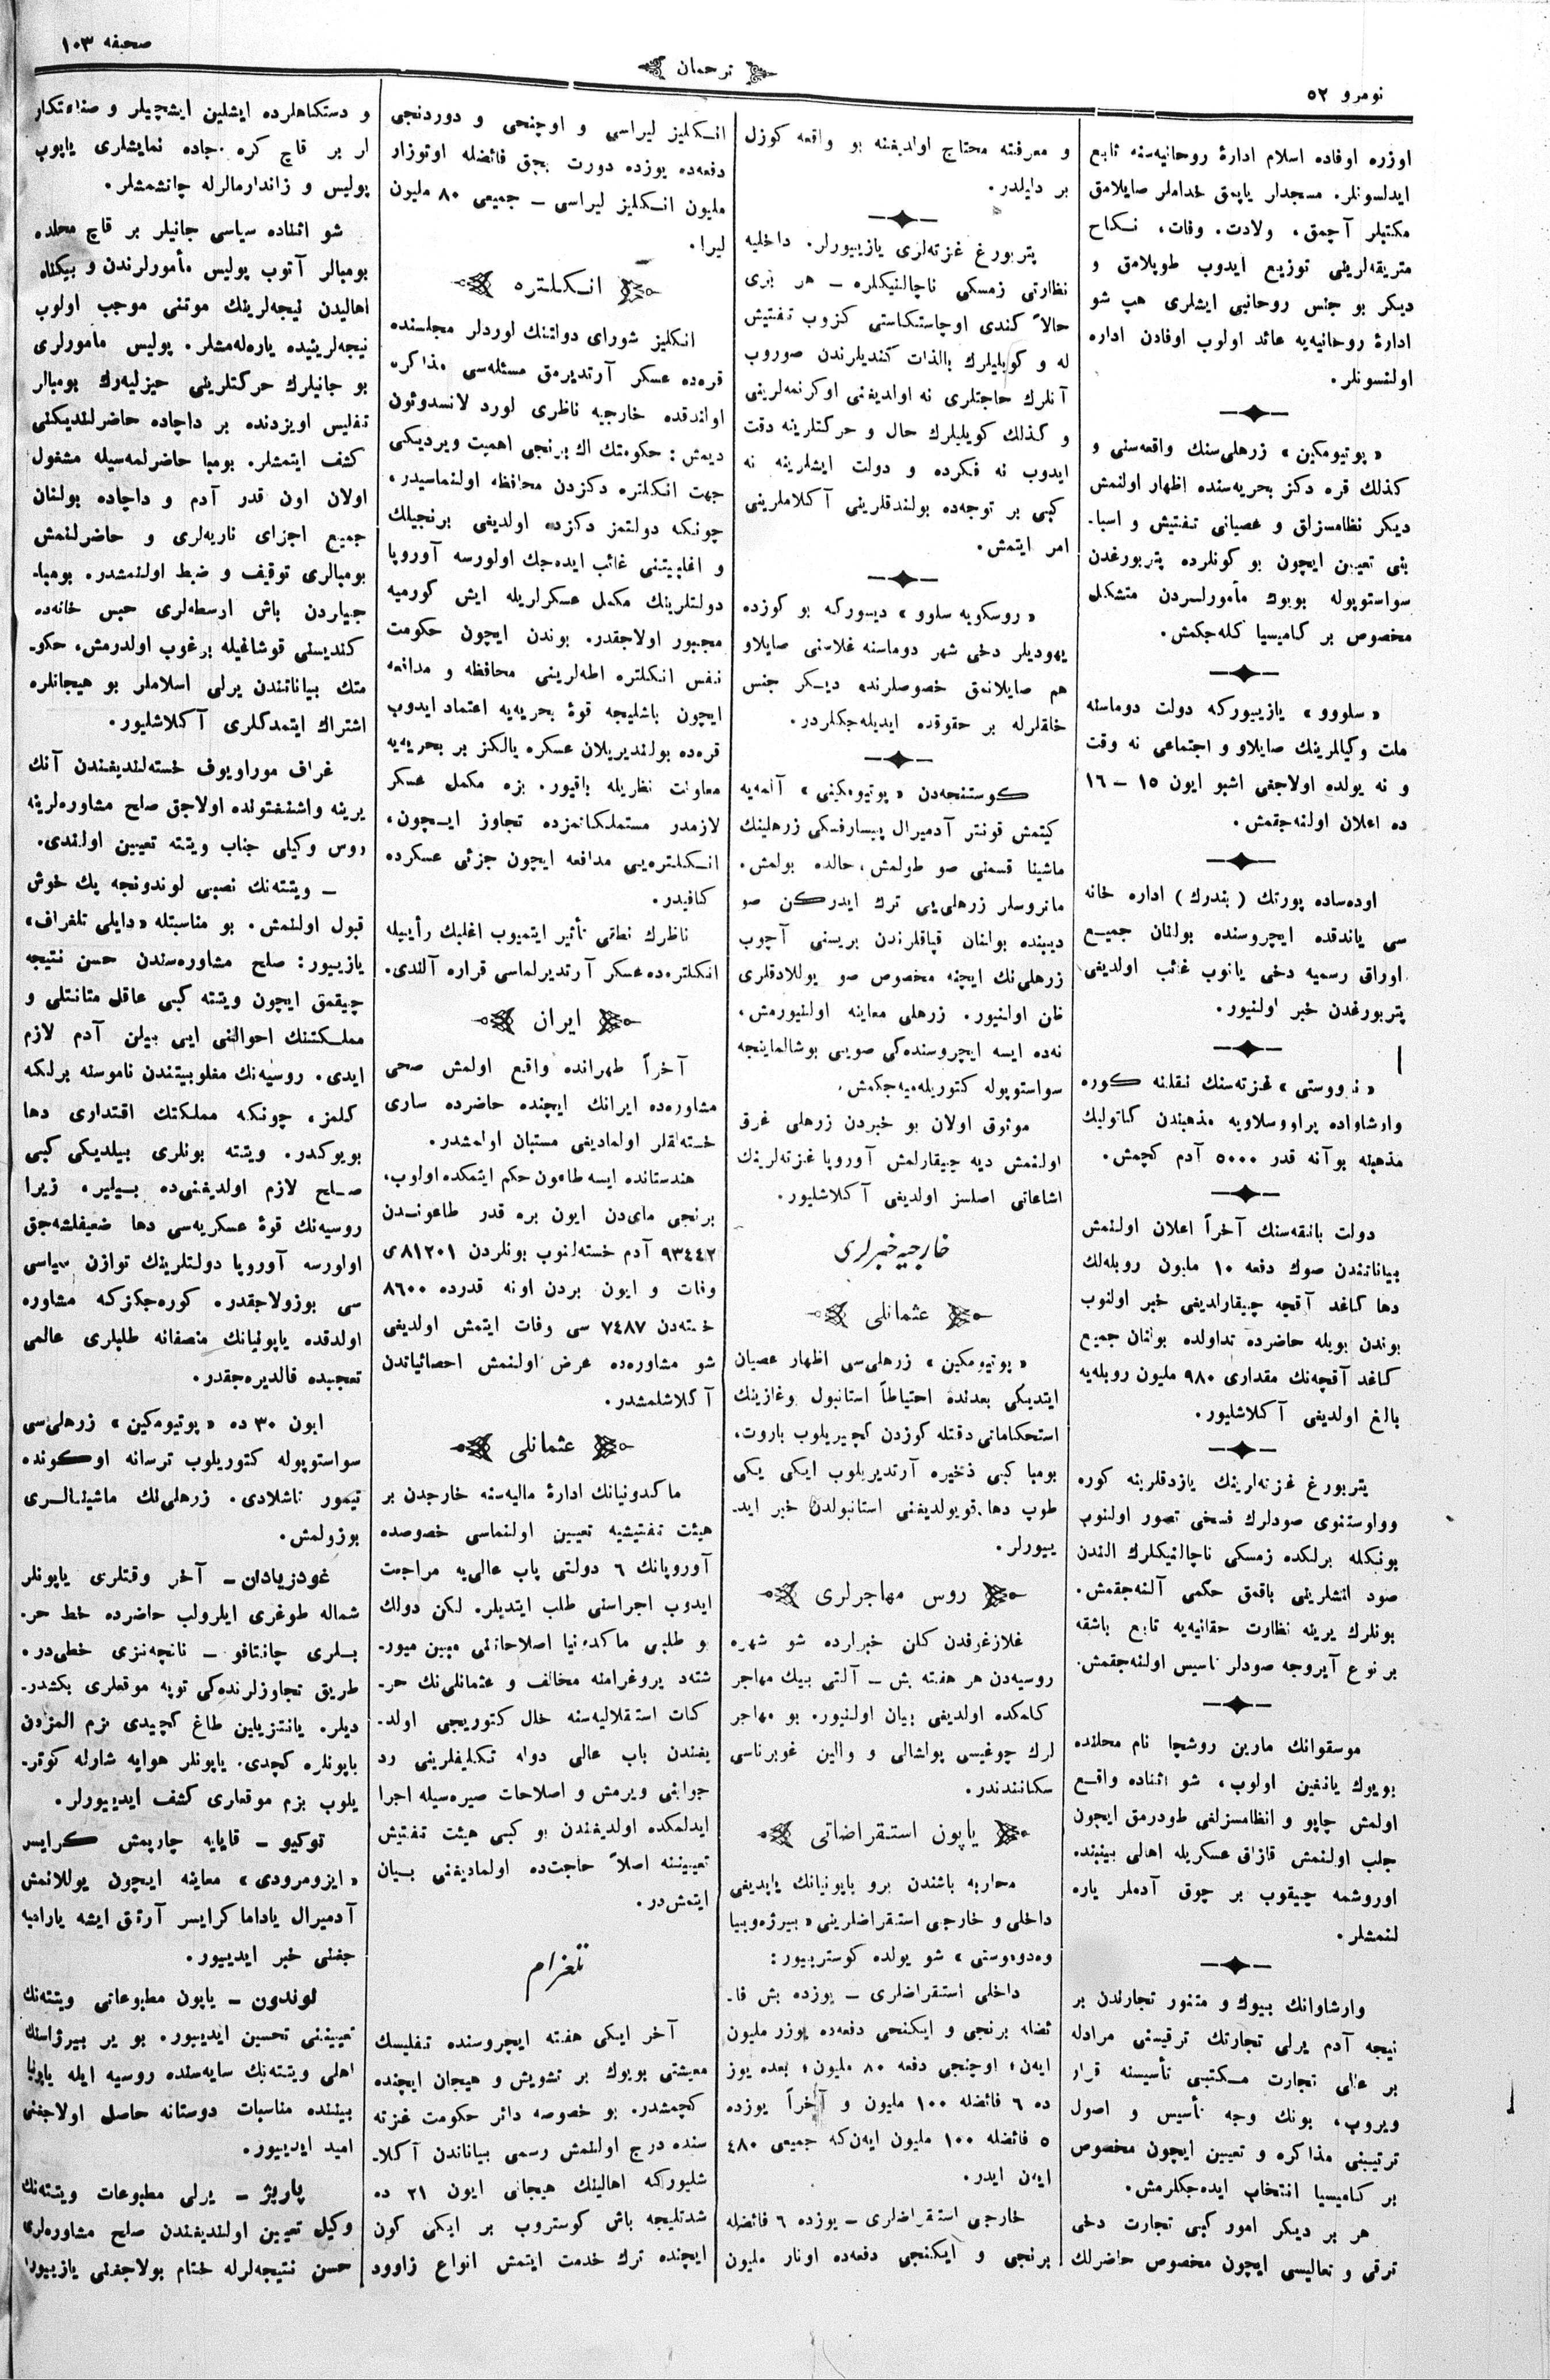 نومرو ٥٢
ترجمان
صحيفه ١٠٣
اوزره اوفاده اسلام ادارۀ روحانيه‌سنه تابع
ايدلسونلر. مسجدلر ياپمق خداملر صايلامق
مكتبلر آچمق، ولادت، وفات، نكاح
متريقه‌لرينى توزيع ايدوب طوپلامق و
ديكر بو جنس روحانيى ايشلرى هپ شو
ادارۀ روحانيه‌يه عائد اولوب اوفادن اداره
اولنسونلر.
« پوتيومكين » زرهلى‌سنك واقعه‌سنى و
كذلك قره دكز بحريه‌سنده اظهار اولنمش
ديكر نظامسزلق و عصيانى تفتيش و اسبا-
بنى تعيين ايچون بو كونلرده پتربورغدن
سواستوپوله بويوك مأمورلردن متشكل
مخصوص بر كاميسيا كله‌جكمش.
« سلووو » يازييوركه دولت دوماسنه
ملت وكيللرينك صايلاو و اجتماعى نه وقت
و نه يولده اولاجغى اشبو ايون ١٥ – ١٦
ده اعلان اولنه‌جقمش.
اوده‌ساده پورتك ( بندرك ) اداره خانه
سى ياندقده ايچروسنده بولنان جميع
اوراق رسميه دخى يانوب غائب اولديغى
پتربورغدن خبر اولنيور.
« نووستى » غزته‌سنك نقلنه كوره
وارشاواده پراووسلاويه مذهبندن كاتوليك
مذهبنه بو آنه قدر ٥٠٠٠ آدم كچمش.
دولت بانقه‌سنك آخراً اعلان اولنمش
بياناتندن صوك دفعه ١٠ مليون روبله‌لك
دها كاغد آقچه چيقارلديغى خبر اولنوب
بوندن بويله حاضرده تداولده بولنان جميع
كاغد آقچه‌نك مقدارى ٩٨٠ مليون روبله‌يه
بالغ اولديغى آكلاشليور.
پتربورغ غزته‌لرينك يازدقلرينه كوره
وولوستنوى صودلرك فسخى تصور اولنوب
بونكله برلكده زمسكى ناچالنيكلرك الندن
صود ايشلرينى باقمق حكمى آلنه‌جقمش.
بونلرك يرينه نظارت حقانيه‌يه تابع باشقه
بر نوع آيروجه صودلر تاسيس اولنه‌جقمش.
موسقوانك مارين روشچا نام محلنده
بويوك يانغين اولوب، شو اثناده واقع
اولمش چاپو و انظامسزلغى طودرمق ايچون
جلب اولنمش قازاق عسكريله اهالى بيننده
اوروشمه چيقوب بر چوق آدملر ياره
لنمشلر.
وارشاوانك بيوك و متنور تجارلندن بر
نيجه آدم يرلى تجارتك ترقيسنى مرادله
بر عالى تجارت مكتبى تأسيسنه قرار
ويروب، بونك وجه تأسيس و اصول
ترتيبنى مذاكره و تعيين ايچون مخصوص
بر كاميسيا انتخاب ايده‌جكلرمش.
هر بر ديكر امور كبى تجارت دخى
ترقى و تعاليسى ايچون مخصوص حاضرلك
و معرفته محتاج اولديغنه بو واقعه كوزل
بر دليلدر.
پتربورغ غزته‌لرى يازييورلر. داخليه
نظارتى زمسكى ناچالنيكلره – هر برى
حالاً كندى اوچاستكاستى كزوب تفتيش
له و كويليلرك بالذات كنديلرندن صوروب
آنلرك حاجتلرى نه اولديغنى اوكرنمه‌لرينى
و كذلك كويليلرك حال و حركتلرينه دقت
ايدوب نه فكرده و دولت ايشلرينه نه
كبى بر توجه‌ده بولندقلرينى آكلاملرينى
امر ايتمش.
« روسكويه سلوو » دييوركه بو كوزده
يهوديلر دخى شهر دوماسنه غلاسنى صايلاو
هم صايلانمق خصوصلرنده ديكر جنس
خلقلرله بر حقوقده ايديله‌جكلردر.
كوستنجه‌دن « پوتيومكينى » آلمه‌يه
كيتمش قونتر آدميرال پيسارفسكى زرهلينك
ماشينا قسمنى صو طولمش، حالده بولمش.
مانروسلر زرهلى‌يى ترك ايدركن صو
ديبنده بولنان قپاقلرندن بريسنى آچوب
زرهلى‌نك ايچنه مخصوص صو يوللادقلرى
ظن اولنيور. زرهلى معاينه اولنيورمش،
نه‌ده ايسه ايچروسنده‌كى صويى بوشالماينجه
سواستوپوله كتوريله‌ميه‌جكمش.
موثوق اولان بو خبردن زرهلى غرق
اولنمش ديه چيقارلمش آوروپا غزته‌لرينك
اشاعاتى اصلسز اولديغى آكلاشليور.
خارجيه خبرلرى
عثمانلى
« پوتيومكين » زرهلى‌سى اظهار عصيان
ايتديكى بعدنده احتياطاً استانبول وغازينك
استحكاماتى دقتله كوزدن كچيريلوب باروت،
بومبا كبى ذخيره آرتديريلوب ايكى يكى
طوپ دها قويولديغنى استانبولدن خبر ايد-
ييورلر.
روس مهاجرلرى
غلازغوفدن كلن خبرلرده شو شهره
روسيه‌دن هر هفته بش – آلتى بيك مهاجر
كلمكده اولديغى بيان اولنيور. بو مهاجر
لرك چوغيسى پولشالى و والين غوبرناسى
سكانندندر.
ياپون استقراضاتى
محاربه باشندن برو ياپونيانك ياپديغى
داخلى و خارجى استقراضلرينى « بيرژه‌وييا
وه‌دوموستى » شو يولده كوستريیور :
داخلى استقراضلرى – يوزده بش فا-
ئضله برنجى و ايكنجى دفعه‌ده يوزر مليون
ايه‌ن؛ اوچنجى دفعه ٨٠ مليون؛ بعده يوز
ده ٦ فائضله ١٠٠ مليون و آخراً يوزده
٥ فائضله ١٠٠ مليون ايه‌ن‌كه جميعى ٤٨٠
ايه‌ن ايدر.
خارجى استقراضلرى – يوزده ٦ فائضله
برنجى و ايكنجى دفعه‌ده اونار مليون
انكليز ليراسى و اوچنجى و دوردنجى
دفعه‌ده يوزده دورت بچق فائضله اوتوزار
مليون انكليز ليراسى – جميعى ٨٠ مليون
ليرا.
انكلتره
انكليز شوراى دولتنك لوردلر مجلسنده
قره‌ده عسكر آرتديرمق مسئله‌سى مذاكره
اولندقده خارجيه ناظرى لورد لانسدوئون
ديمش : حكومتك اك برنجى اهميت ويرديكى
جهت انكلتره دكزدن محافظه اولنماسيدر،
چونكه دولتمز دكزده اولديغى برنجيلك
و اغلبيتنى غائب ايده‌جك اولورسه آوروپا
دولتلرينك مكمل عسكرلريله ايش كورميه
مجبور اولاجقدر. بوندن ايچون حكومت
نفس انكلتره اطه‌لرينى محافظه و مدافعه
ايچون باشليجه قوۀ بحريه‌يه اعتماد ايدوب
قره‌ده بولنديريلان عسكره يالكز بر بحريه‌يه
معاونت نظريله باقيور. بزه مكمل عسكر
لازمدر مستملكاتمزده تجاوز ايچون،
انكلتره‌يى مدافعه ايچون جزئى عسكرده
كافيدر.
ناظرك نطقى تأثير ايتميوب اغلبك رأييله
انكلتره‌ده عسكر آرتديرلماسى قراره آلندى.
ايران
آخراً طهرانده واقع اولمش صحى
مشاوره‌ده ايرانك ايچنده حاضرده سارى
خسته‌لقلر اولماديغى مستبان اولمشدر.
هندستانده ايسه طاعون حكم ايتمكده اولوب،
برنجى ماى‌دن ايون بره قدر طاعوندن
٩٣٤٤٢ آدم خسته‌لنوب بونلردن ٨١٢٠١ى
وفات و ايون بردن اونه قدرده ٨٦٠٠
خسته‌دن ٧٤٨٧ سى وفات ايتمش اولديغى
شو مشاوره‌ده عرض اولنمش احصائياتدن
آكلاشلمشدر.
عثمانلى
ماكدونيانك ادارۀ ماليه‌سنه خارجدن بر
هيئت تفتيشيه تعيين اولنماسى خصوصده
آوروپانك ٦ دولتى باب عالى‌يه مراجعت
ايدوب اجراسنى طلب ايتديلر. لكن دولك
بو طلبى ماكدونيا اصلاحاتى مبين ميور-
شته‌د پروغرامنه مخالف و عثمانلى‌نك حر-
كات استقلاليه‌سنه خلل كتوريجى اولد-
يغندن باب عالى دوله تكليفلرينى رد
جوابنى ويرمش و اصلاحات صيره‌سيله اجرا
ايدلمكده اولديغندن بو كبى هيئت تفتيش
تعييننه اصلاً حاجت‌ده اولماديغنى بيان
ايتمش‌در.
تلغرام
آخر ايكى هفته ايچروسنده تفليسك
معيشتى بويوك بر تشويش و هيجان ايچنده
كچمشدر. بو خصوصه دائر حكومت غزته
سنده درج اولنمش رسمى بياناتدن آكلا-
شليوركه اهالينك هيجانى ايون ٢١ ده
شدتليجه باش كوستروب بر ايكى كون
ايچنده ترك خدمت ايتمش انواع زاوود
و دستكاهلرده ايشلين ايشچيلر و صنعتكار
لر بر قاچ كره جاده نمايشلرى ياپوب
پوليس و زاندارمالرله چاتشمشلر.
شو اثناده سياسى جانيلر بر قاچ محلده
بومبالر آتوب پوليس مأمورلرندن و بيكناه
اهاليدن نيجه‌لرينك موتنى موجب اولوب
نيجه‌لرينيده ياره‌له‌مشلر. پوليس مأمورلرى
بو جانيلرك حركتلرينى حيزليه‌رك بومبالر
تفليس اويزدنده بر داچاده حاضرلنديكنى
كشف ايتمشلر. بومبا حاضرلمه‌سيله مشغول
اولان اون قدر آدم و داچاده بولنان
جميع اجزاى ناريه‌لرى و حاضرلنمش
بومبالرى توقيف و ضبط اولنمشدر. بومبا-
جيلردن باش اوسطه‌لرى حبس خانه‌ده
كنديسنى قوشاغيله بوغوب اولدرمش، حكو-
متك بياناتندن يرلى اسلاملر بو هيجانلره
اشتراك ايتمدكلرى آكلاشليور.
غراف موراويوف خسته‌لنديغندن آنك
يرينه واشنغتونده اولاجق صلح مشاوره‌لرينه
روس وكيلى جناب ويتته تعيين اولندى.
– ويتته‌نك نصبى لوندونجه پك خوش
قبول اولنمش. بو مناسبتله « دايلى تلغراف »
يازييور : صلح مشاوره‌سندن حسن نتيجه
چيقمق ايچون ويتته كبى عاقل متانتلى و
مملكتنك احوالنى ايى بيلن آدم لازم
ايدى. روسيه‌نك مغلوبيتندن ناموسنه برلكه
كلمز، چونكه مملكتك اقتدارى دها
بويوكدر. ويتته بونلرى بيلديكى كبى
صلح لازم اولديغنى‌ده بيلير. زيرا
روسيه‌نك قوۀ عسكريه‌سى دها ضعيفلشه‌جق
اولورسه آوروپا دولتلرينك توازن سياسى
سى بوزولاجقدر. كوره‌جكزكه مشاوره
اولدقده ياپونيانك منصفانه طلبلرى عالمى
تعجبده قالديره‌جقدر.
ايون ٣٠ ده « پوتيومكين » زرهلى‌سى
سواستوپوله كتوريلوب ترسانه اوكونده
تيمور تاشلادى. زرهلى‌نك ماشينالرى
بوزولمش.
غودزيادان – آخر وقتلرى ياپونلر
شماله طوغرى ايلرولب حاضرده خط حر-
بلرى چانتافو – نانچه‌نزى خطى‌در.
طريق تجاوزلرنده‌كى توپه موقعلرى بكشدر-
ديلر. يانتزيلين طاغ كچيدى بزم المزدن
ياپونلره كچدى. ياپونلر هوايه شارله كوتر-
يلوب بزم موقعلرى كشف ايدييورلر.
توكيو – قايايه چارپمش كرايسر
« ايزومرودى » معاينه ايچون يوللانمش
آدميرال ياداما كرايسر آرتق ايشه ياراميه
جغنى خبر ايدييور.
لوندون – ياپون مطبوعاتى ويتته‌نك
تعييننى تحسين ايدييور. بو ير بيرژاسنك
اهلى ويتته‌نك سايه‌سنده روسيه ايله ياپونيا
بيننده مناسبات دوستانه حاصل اولاجغنى
اميد ايدييور.
پاريژ – يرلى مطبوعات ويتته‌نك
وكيل تعيين اولنديغندن صلح مشاوره‌لرى
حسن نتيجه‌لرله ختام بولاجغنى يازييور.